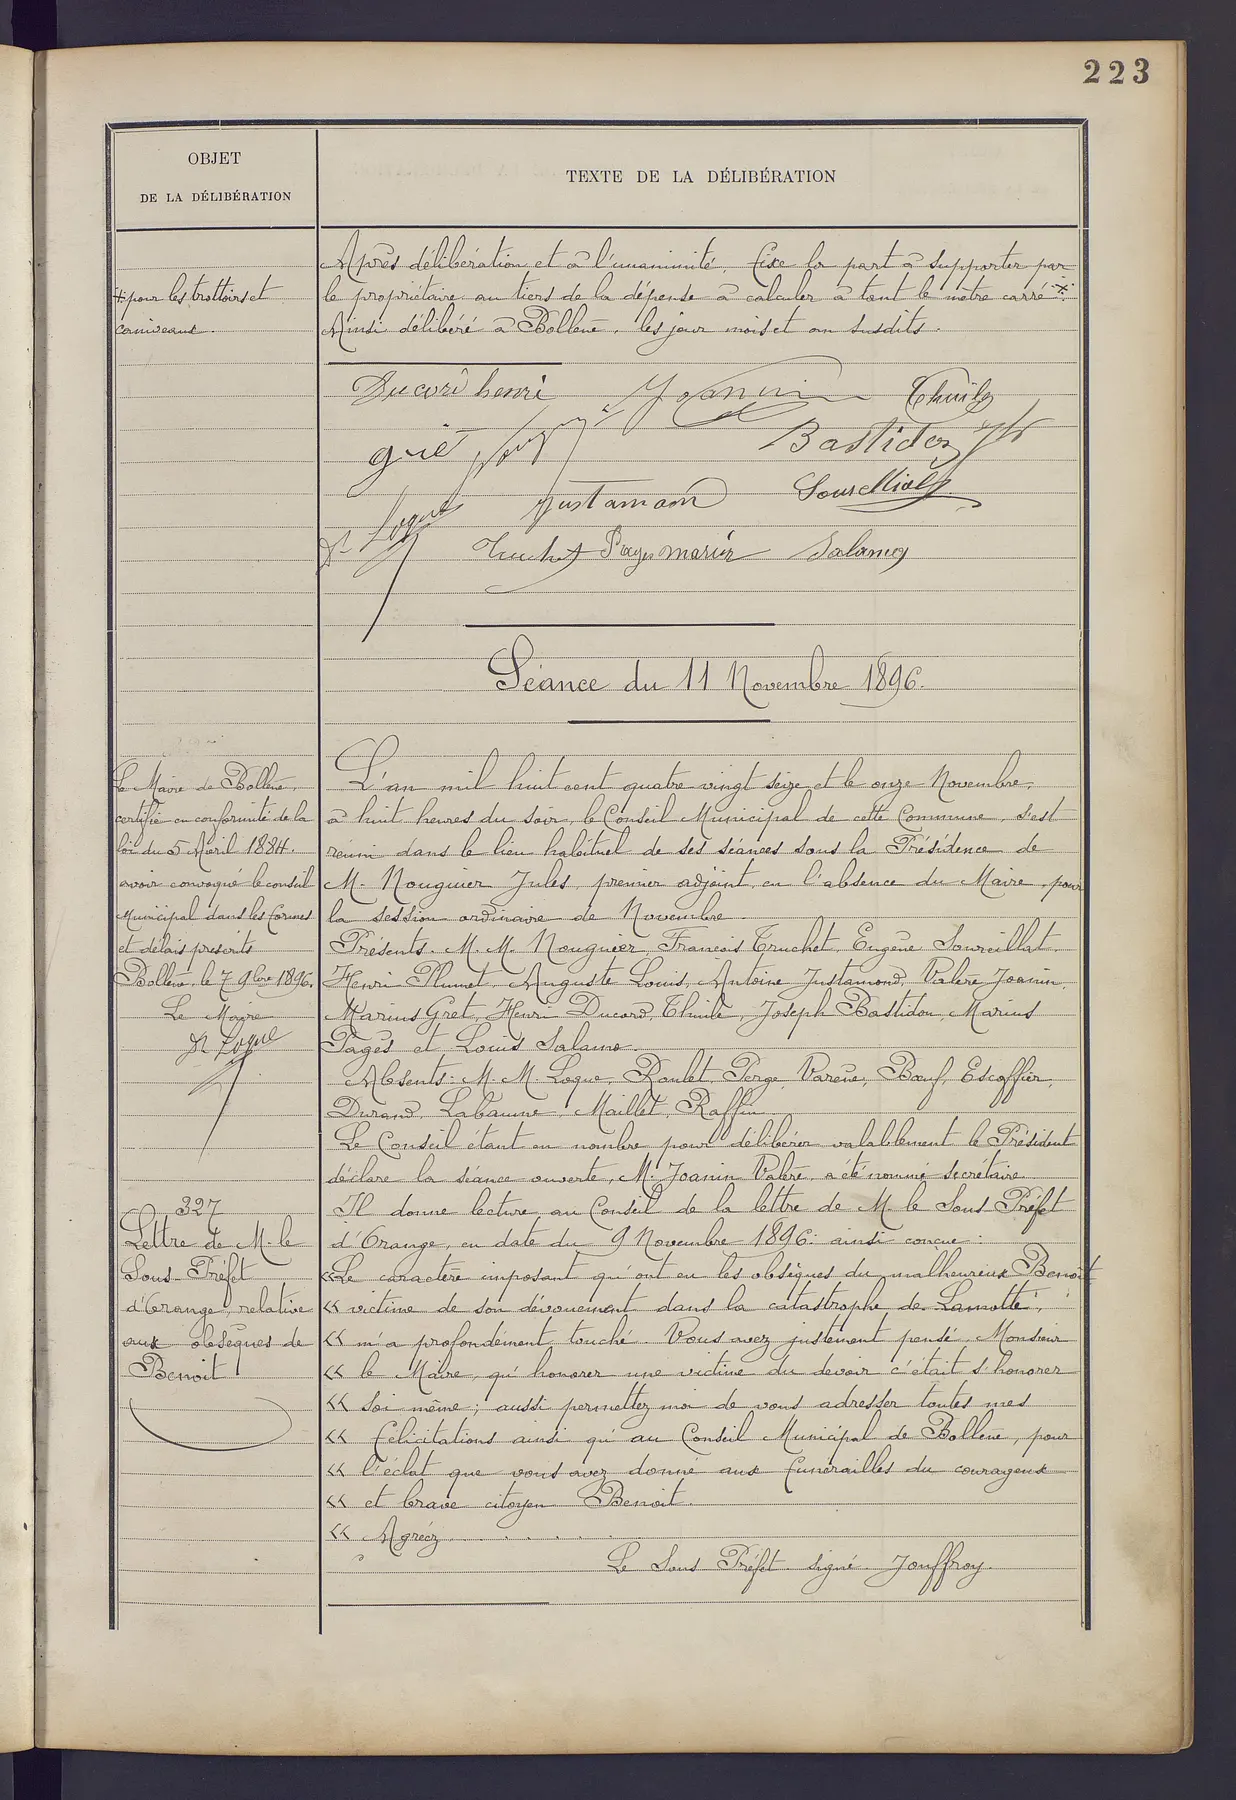 223
OBJET
DE LA DÉLIBÉRATION
TEXTE DE LA DÉLIBÉRATION
Après délibération et à l'unanimité, fixe la part à supporter par
le propriétaire au tiers de la dépense à calculer à tant le mètre carré ⁜
Ainsi délibéré à Bollène, les jour mois et an susdits.
⁜ pour les trottoirs et
caniveaux.
Ducord henri Joannin Thuile
gret Bastidon
Justamond Soureillat
Dr Loque Truchet Pages mariur Salamo
Séance du 11 Novembre 1896.
Le Maire de Bollène,
certifie en conformité de la
loi du 5 Avril 1884.
avoir convoqué le conseil
Municipal dans les formes
et délais prescrits
Bollène, le 7 9bre 1896.
Le Maire
Dr Loque
L'an mil huit cent quatre vingt seize et le onze Novembre,
à huit heures du soir, le Conseil Municipal de cette Commune, s'est
réuni dans le lieu habituel de ses séances sous la Présidence de
M. Nouguier Jules, premier adjoint, en l'absence du Maire, pour
la session ordinaire de Novembre.
Présents. M. M. Nouguier, François Truchet, Eugène Soureillat,
Henri Plumet, Auguste Louis, Antoine Justamond, Valère Joanin,
Marius Gret, Henri Ducord, Thuile, Joseph Bastidon, Marius
Pagès et Louis Salamo.
Absents: M. M. Loque, Roulet, Perge, Varène, Bœuf, Escoffier,
Durand, Labaume, Maillet, Raffin.
Le Conseil étant en nombre pour délibérer valablement le Président
déclare la séance ouverte, M. Joanin Valère, a été nommé secrétaire.
327
Lettre de M. le
Sous-Préfet
d'Orange, relative
aux obsèques de
Benoit
Il donne lecture au Conseil de la lettre de M. le Sous Préfet
d'Orange, en date du 9 Novembre 1896: ainsi conçue:
«Le caractère imposant qu'ont eu les obsèques du malheureux Benoit
« victime de son dévouement dans la catastrophe de Lamotte,
« m'a profondément touché. Vous avez justement pensé, Monsieur
« le Maire, qu'honorer une victime du devoir c'était s'honorer
« soi même; aussi permettez moi de vous adresser toutes mes
« félicitations ainsi qu'au Conseil Municipal de Bollène, pour
« l'éclat que vous avez donné aux funérailles du courageux
« et brave citoyen Benoit.
« Agréez . . . . . .
Le Sous Préfet signé Jouffroy.